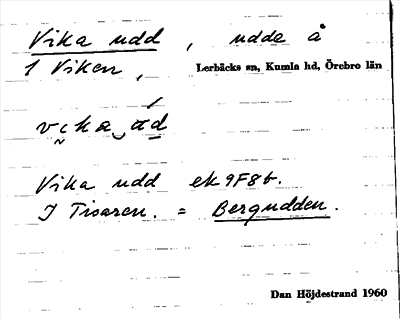 Vika udd, udde å
1 Viken, Lerbäcks sn, Kumla hd, Örebro län
Vika udd ek 9F8b.
I Tisaren. = Bergudden.
Dan Höjdestrand 1960